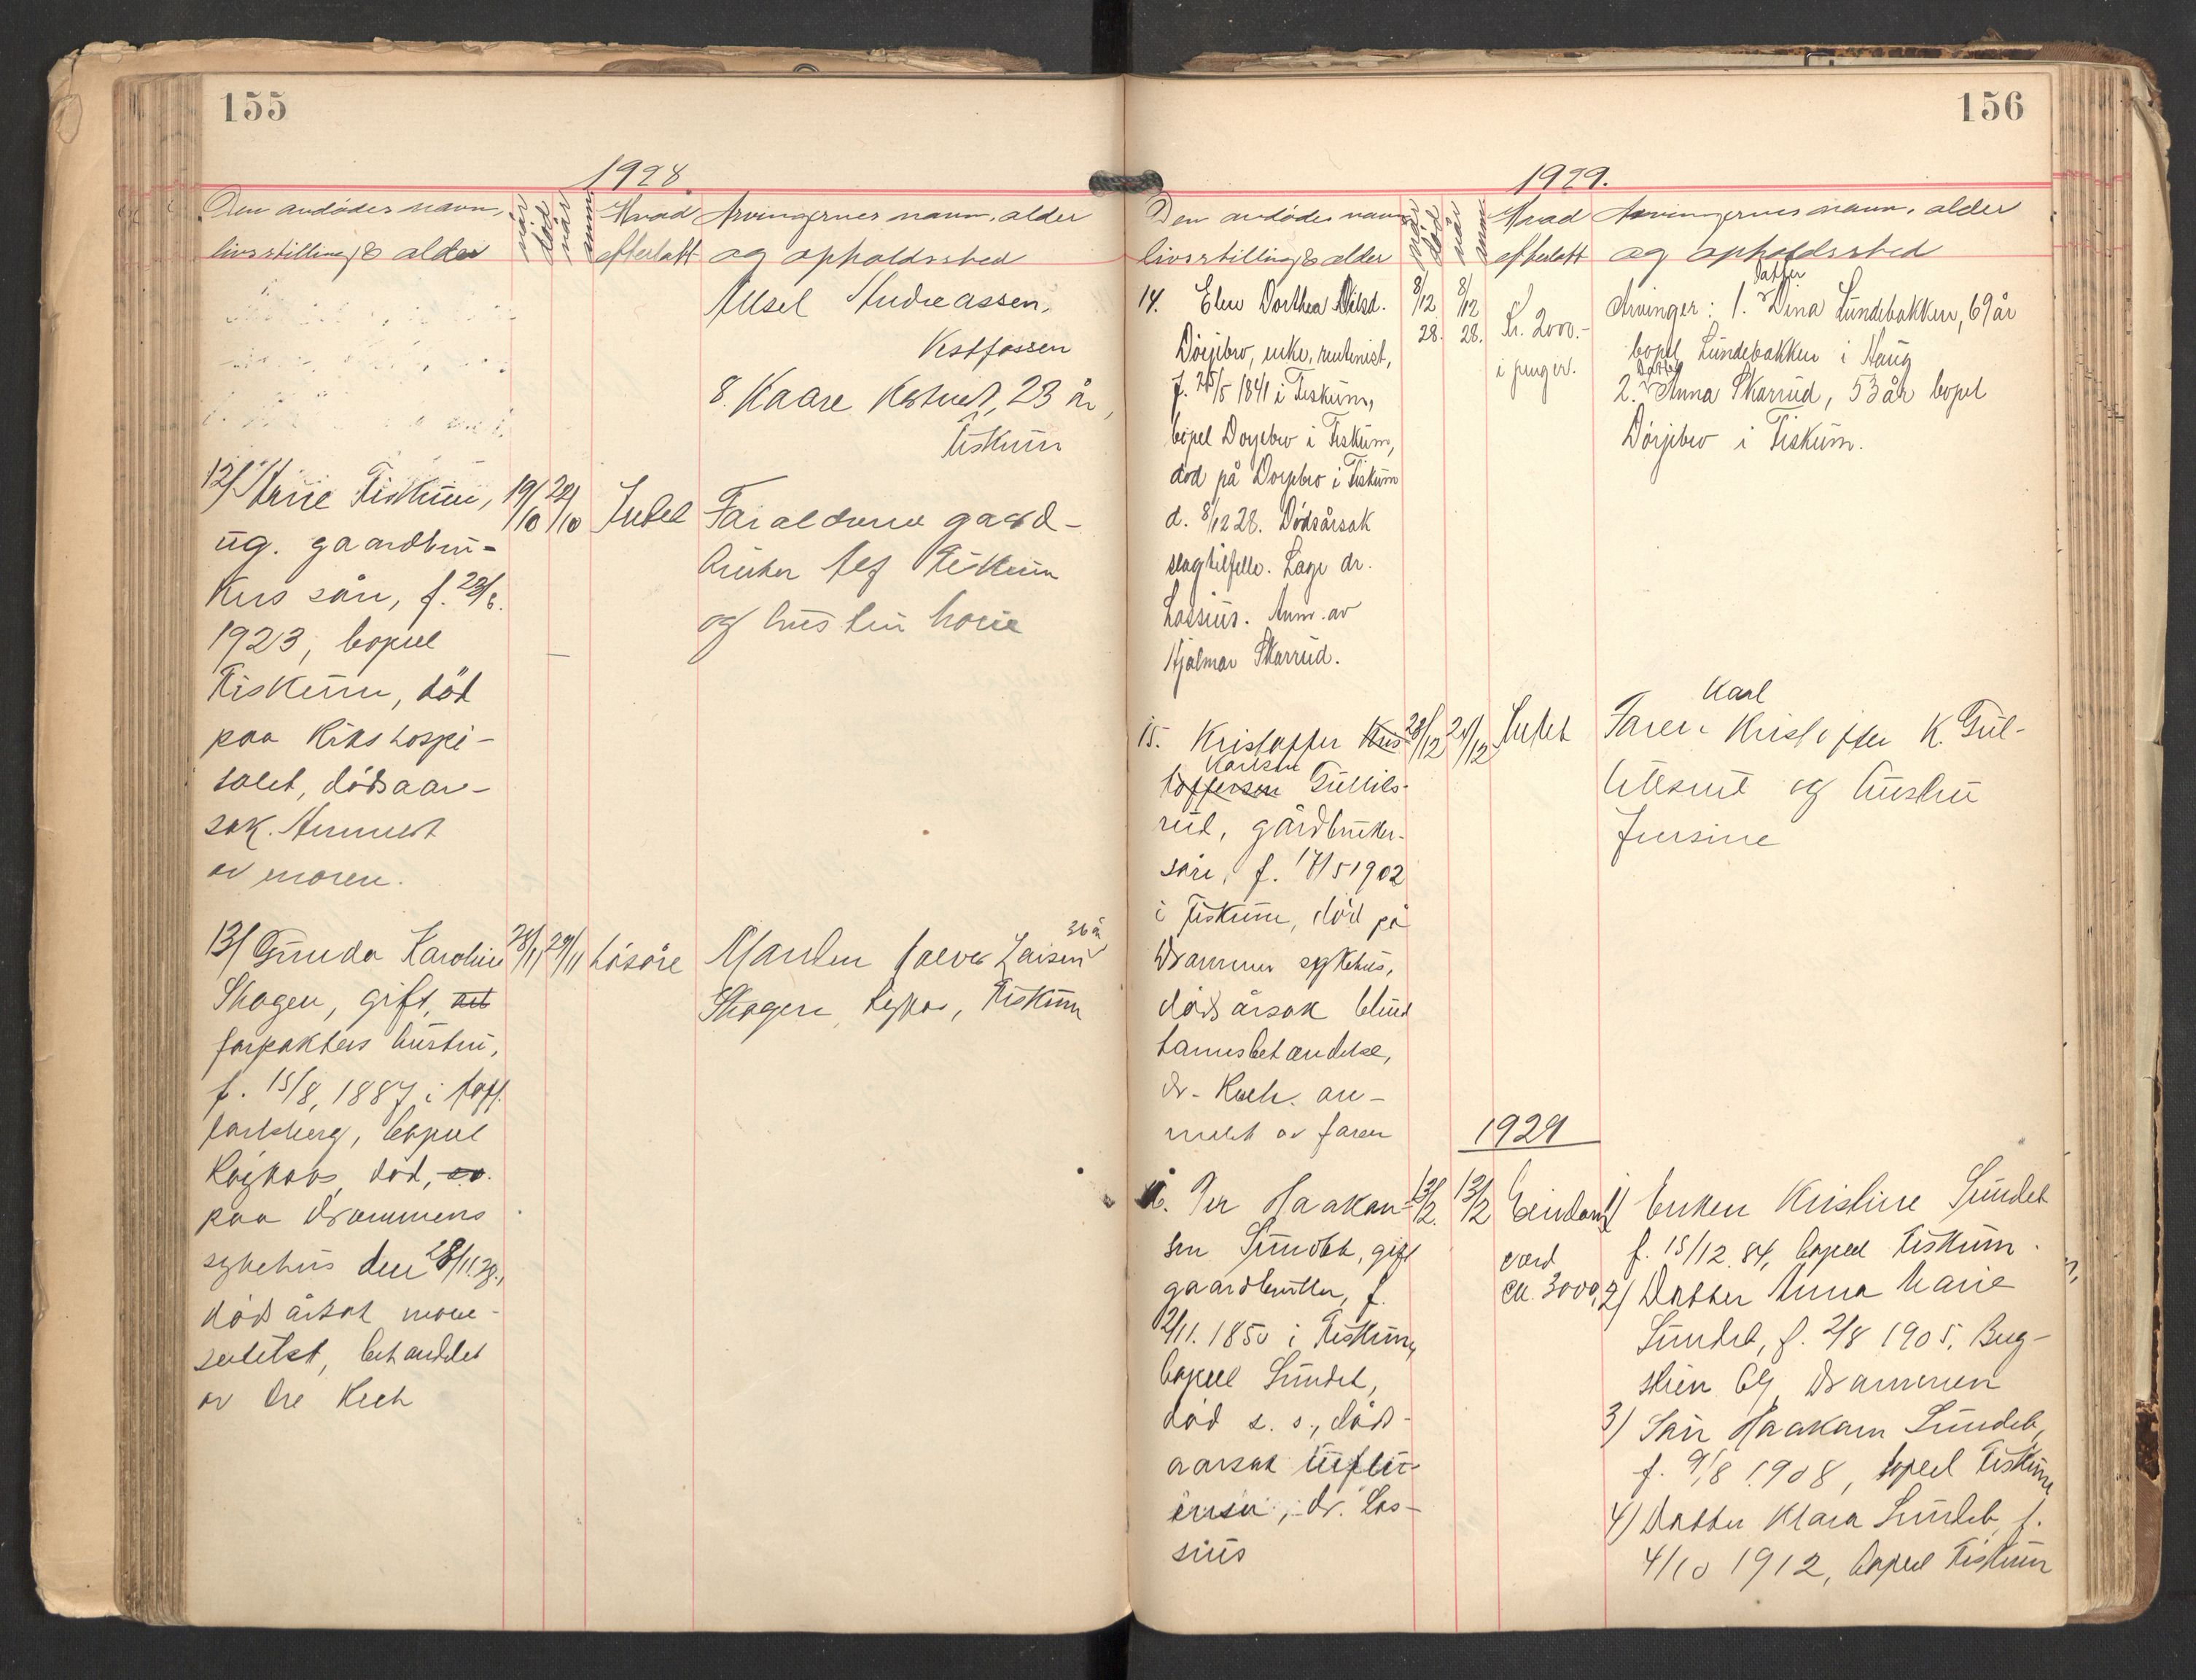 155
1928
Den avdødes navn,
livsstilling & alder
når død
når anm.
Hvad
efterlatt
Arvingernes navn, alder
og opholdssted
Aksel Andreassen,
Vestfossen
8. Kaare 23 år,
Fiskum
12/ Arne Fiskum,
ug. gaardbru-
kers søn, f. 28/6.
1923, bopel
Fiskum, död
paa Rikshospi-
talet, dödsaar-
sak. Anmeldt
av moren.
19/10
22/10
Intet
Foreldrene gaard-
bruker Alf Fiskum
og hustru
13/ Gunda Karoline
Skogen, gift,
forpakters hustru,
f. 15/8, 1887 i
Jarlsberg, bopel
död,
paa Drammens
sykehus den 28/11.28.,
dödsårsak
behandlet
av Dre Koch
28/11
29/11
Løsøre
Manden Lauritz 36 år
Skogen, Fiskum
156
1929.
Den avdødes navn
livsstilling & alder
når død
når anm.
Hvad
efterlatt
Arvingernes navn, alder
og opholdssted
14. Elen Dorthea Nilsd.
Dörjebro, enke, rentenist,
f. 25/5 1841 i Fiskum,
bopel Dorjebro i Fiskum,
död på Dorjebro i Fiskum
d. 8/12 28. Dödsårsak
slagtilfelle. Læge dr.
Lossius. Anm. av
Hjalmar Skarrud.
8/12 28.
8/12 28.
Kr. 2000.-
i penger.
Arvinger: 1. Datter Dina Lundebakken, 69 år
bopel Lundebakken i Haug
2. Datter Anna Skarrud, 53 år bopel
Dörjebro i Fiskum.
15. Kristoffer Kris-
toffersen Karlsen Gullics-
rud, gårdbruker-
søn, f. 17/5 1902
i Fiskum, død på
Drammen sykehus,
dödsårsak blind
tarmsbetændelse,
dr. Koch. an-
meldt av faren
28/12
29/12
Intet
Faren Karl Kristoffer K. Gul-
licksrud og hustru
Jensine
1929
1. Per Haakon-
sen Sundet, gift
gaardbruker, f.
2/11. 1850 i Fiskum,
bopel Sundet,
död s. s., döds-
aarsak influ-
ensa, dr. Los-
sius
13/2.
13/2
Eiendom
verd
ca. 3000,
1/ Enken Kristine Sundet
f. 15/12.84, bopel Fiskum.
2/ Datter Anna Marie
Sundet, f. 2/8 1905, Bug-
stien 69 Drammen
3/ Sön Haakon Sundet,
f. 9/8 1908, bopel Fiskum
4/ Datter Klara Sundet, f.
4/10 1912, bopel Fiskum